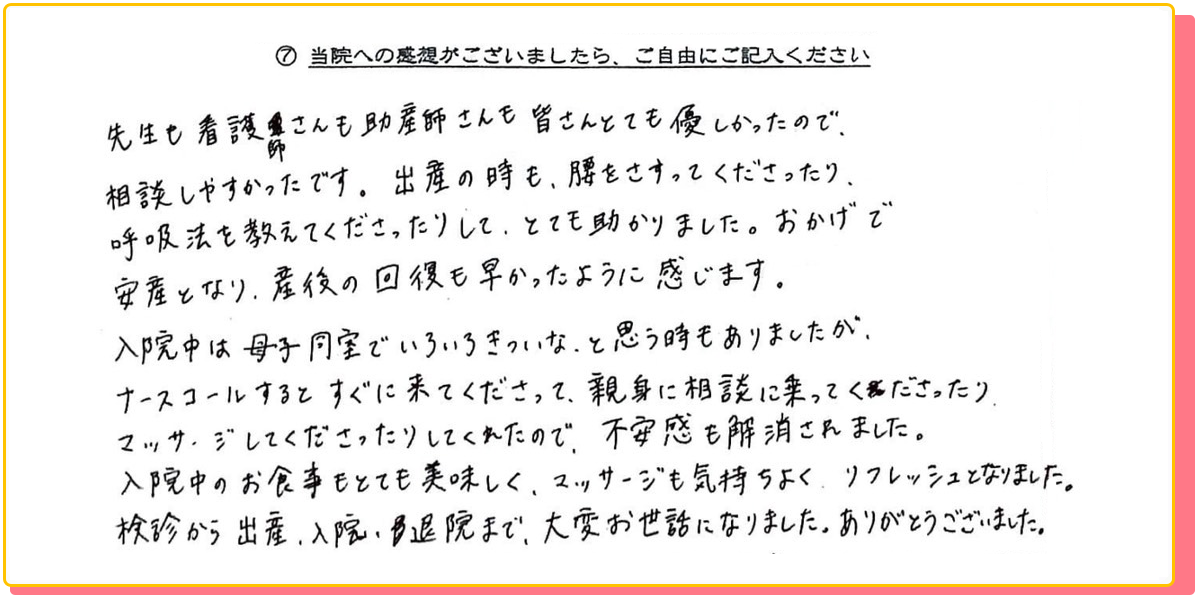 ⑦ 当院への感想がございましたら、ご自由にご記入ください
先生も看護師さんも助産師さんも皆さんとても優しかったので、
相談しやすかったです。出産の時も、腰をさすってくださったり、
呼吸法を教えてくださったりして、とても助かりました。おかげで
安産となり、産後の回復も早かったように感じます。
入院中は母子同室でいろいろきついな、と思う時もありましたが、
ナースコールするとすぐに来てくださって、親身に相談に乗ってくださったり、
マッサージしてくださったりしてくれたので、不安感も解消されました。
入院中のお食事もとても美味しく、マッサージも気持ちよく、リフレッシュとなりました。
検診から出産、入院、退院まで、大変お世話になりました。ありがとうございました。